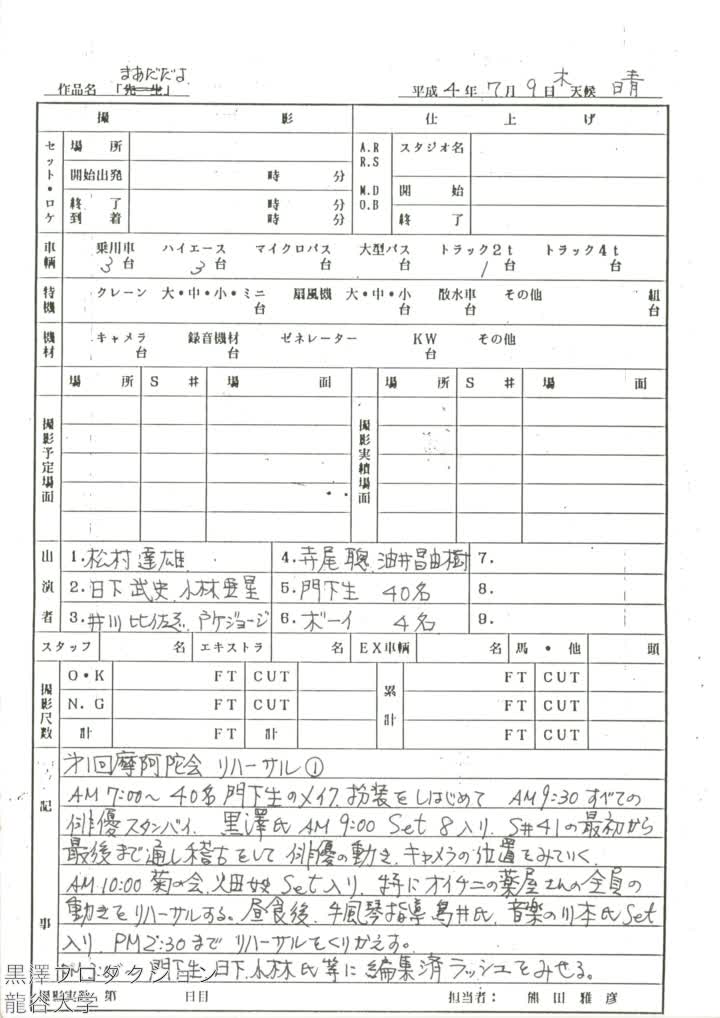 まあだだよ
作品名 「先生」 平成4年7月9日 木 天候 晴
撮 影 仕 上 げ
セット・ロケ 場 所 A.R R.S スタジオ名
開始出発 時 分 M.D O.B 開 始
終 了 時 分 終 了
到 着 時 分
車輌 乗用車 ハイエース マイクロバス 大型バス トラック2t トラック4t
3台 3台 台 台 1台 台
特機 クレーン 大・中・小・ミニ 扇風機 大・中・小 散水車 その他 組
台 台 台 台
機材 キャメラ 録音機材 ゼネレーター KW その他
台 台 台
場 所 S # 場 面 場 所 S # 場 面
撮影予定場面 撮影実績場面
出演者 1.松村達雄 4.寺尾聰 油井昌由樹 7.
2.日下武史 小林亜星 5.門下生 40名 8.
3.井川比佐志 平ケジョージ 6.ボーイ 4名 9.
スタッフ 名 エキストラ 名 EX車輌 名 馬・他 頭
撮影尺数 O・K FT CUT 累計 FT CUT
N.G FT CUT FT CUT
計 FT 計 FT CUT
記事
第1回摩阿陀会 リハーサル①
AM 7:00〜 40名門下生のメイク、扮装をしはじめて AM9:30 すべての
俳優スタンバイ. 黒澤氏 AM 9:00 Set 8入り. S#41の最初から
最後まで通し稽古をして 俳優の動き、キャメラの位置をみていく.
AM10:00 菊の会、 Set入り. 特にオイチニの薬屋さんの全員の
動きをリハーサルする。昼食後、手風琴指導鳥井氏、音楽の川本氏Set
入り. PM2:30まで リハーサルをくりかえす。
門下生、日下、小林氏等に 編集済ラッシュをみせる。
撮影実数 第 日目 担当者： 熊田雅彦
黒澤プロダクション
龍谷大学